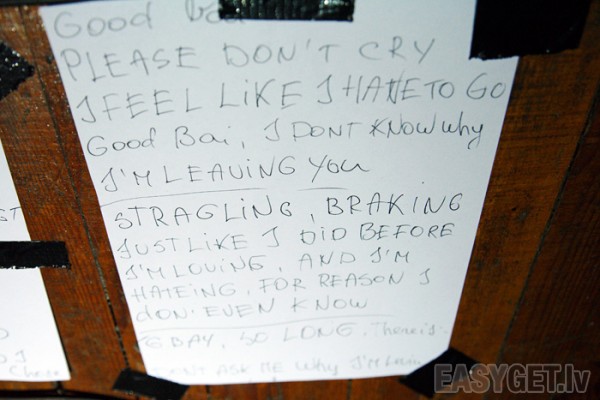 Good bai
PLEASE DON'T CRY
I FEEL LIKE I HAVE TO GO
Good Bai, I DONT KNOW Why
I'M LEAVING YOU
STRAGLING, BRAKING
JUST LIKE I DID BEFORE
I'M LOVING, AND I'M
HATEING, FOR REASON I
DON'EVEN KNOW
G BAY, SO LONG, There is
DONT ASK ME Why I'M
ST
D
D I
EASYGET.lv